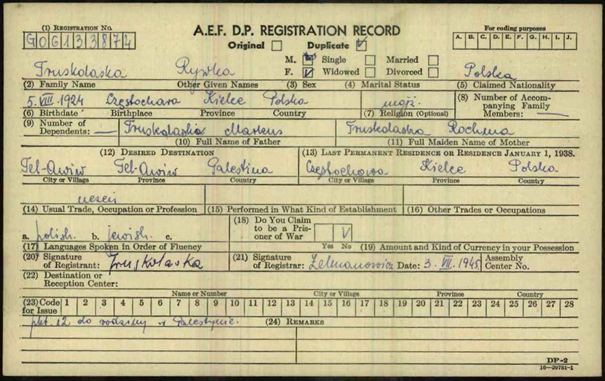 (1) REGISTRATION NO.
G06133874
A.E.F. D.P. REGISTRATION RECORD
Original ☐ Duplicate ☑
For coding purposes
A. B. C. D. E. F. G. H. I. J.
M. Single ☐ Married ☐
Truskolaska Rywka F. Widowed ☐ Divorced ☐ Polska
(2) Family Name Other Given Names (3) Sex (4) Marital Status (5) Claimed Nationality
5.VIII 1924 Częstochowa Kielce Polska mojż.
(6) Birthdate Birthplace Province Country (7) Religion (Optional)
(8) Number of Accompanying Family Members: —
(9) Number of Dependents: —
Truskolaska Markus Truskolaska Rochma
(10) Full Name of Father (11) Full Maiden Name of Mother
(12) DESIRED DESTINATION (13) LAST PERMANENT RESIDENCE OR RESIDENCE JANUARY 1, 1938.
Tel-Awiw Tel-Awiw Palestina Częstochowa Kielce Polska
City or Village Province Country City or Village Province Country
uczeń
(14) Usual Trade, Occupation or Profession (15) Performed in What Kind of Establishment (16) Other Trades or Occupations
a. polish b. jewish c.
(17) Languages Spoken in Order of Fluency
(18) Do You Claim to be a Prisoner of War
Yes No
(19) Amount and Kind of Currency in your Possession
(20) Signature of Registrant: Truskolaska (21) Signature of Registrar: Date: 3. VII. 1945 Assembly Center No.
(22) Destination or Reception Center:
Name or Number City or Village Province Country
(23) Code for Issue 1 2 3 4 5 6 7 8 9 10 11 12 13 14 15 16 17 18 19 20 21 22 23 24 25 26 27 28
pkt. 12 do rodziny w Palestynie. (24) REMARKS
DP-2
16—39781-1